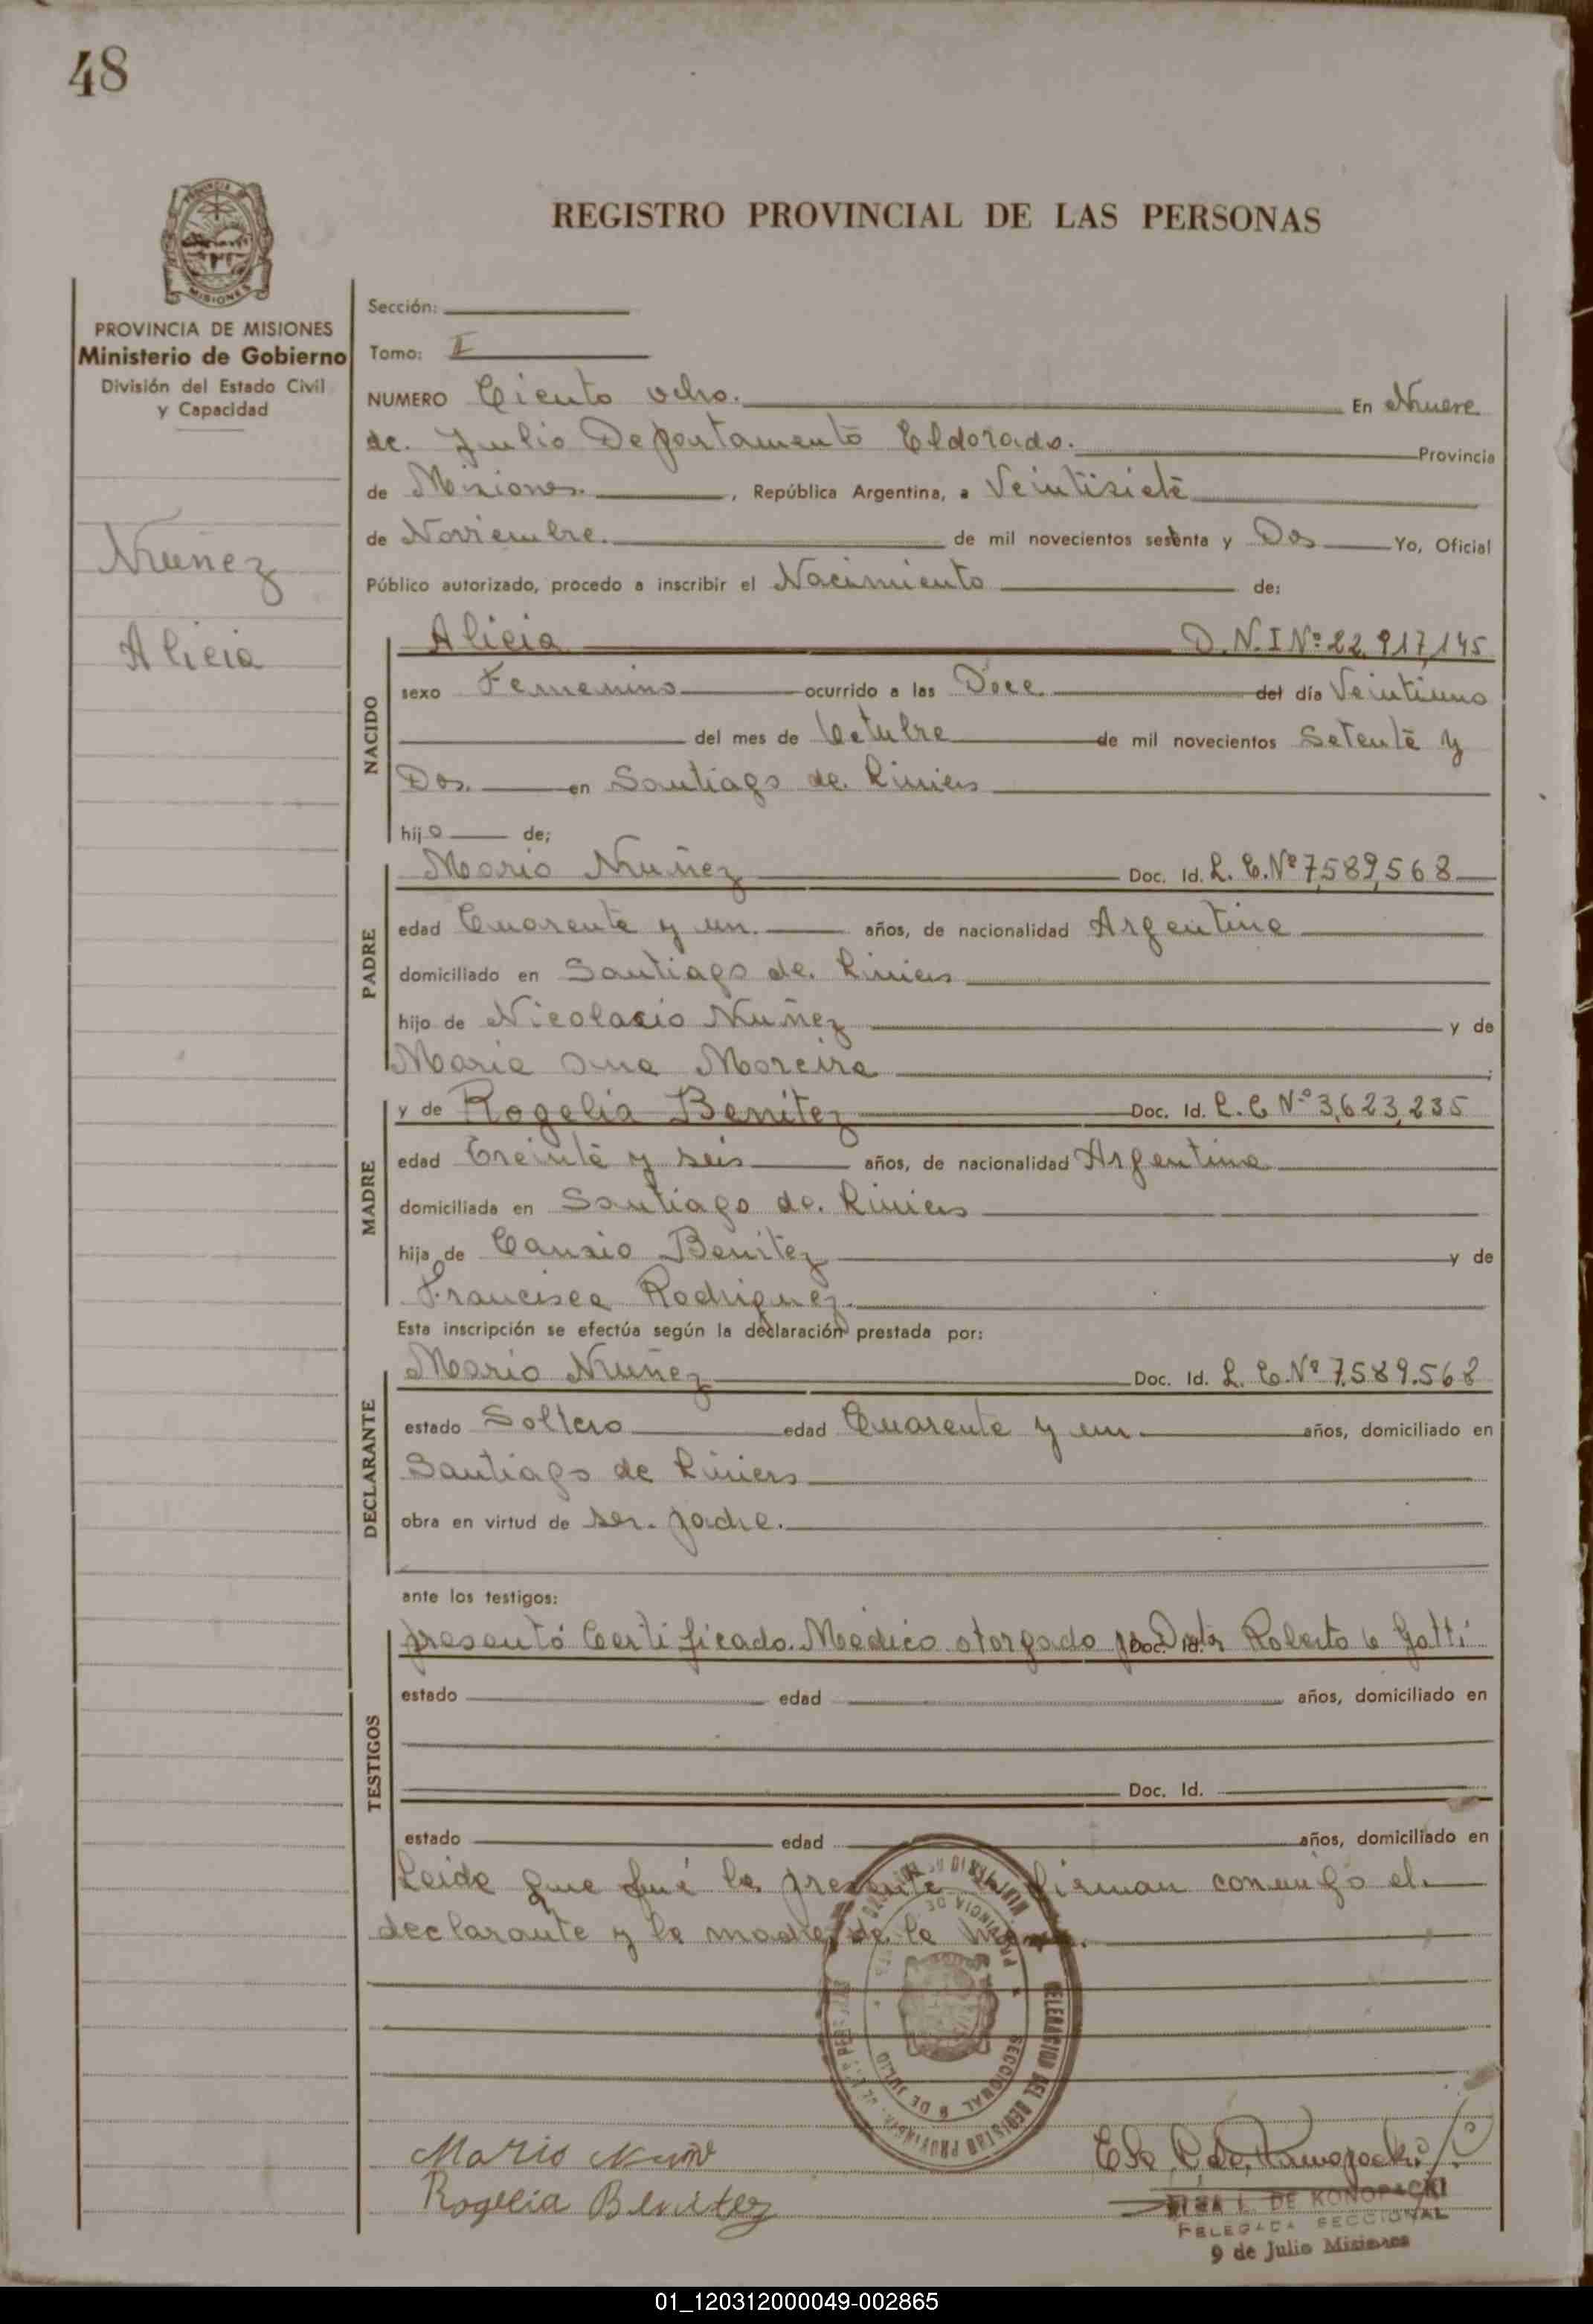 48
REGISTRO PROVINCIAL DE LAS PERSONAS
MISIONES
PROVINCIA DE MISIONES
Ministerio de Gobierno
División del Estado Civil
y Capacidad
Nuñez
Alicia
Sección:
Tomo: I
NUMERO Ciento ocho. En Nueve
de. Julio Departamento Eldorado. Provincia
de Misiones. , República Argentina, a Veintisiete
de Noviembre. de mil novecientos sesenta y Dos Yo, Oficial
Público autorizado, procedo a inscribir el Nacimiento de:
NACIDO
Alicia D.N.I Nº 22,917,145
sexo Femenino ocurrido a las Doce del día Veintiuno
del mes de Octubre de mil novecientos Setenta y
Dos. en Santiago de. Liniers
hija de;
PADRE
Mario Nuñez Doc. Id. L. E. Nº 7,589,568
edad Cuarenta y un. años, de nacionalidad Argentina
domiciliado en Santiago de. Liniers
hijo de Nicolasio Nuñez y de
Maria Ana Moreira ;
MADRE
y de Rogelia Benitez Doc. Id. L.C Nº 3,623,235
edad Treinta y seis años, de nacionalidad Argentina
domiciliada en Santiago de. Liniers
hija de Cansio Benitez y de
Francisca Rodriguez.
Esta inscripción se efectúa según la declaración prestada por:
DECLARANTE
Mario Nuñez Doc. Id. L. E. Nº 7.589.568
estado Soltero edad Cuarenta y un años, domiciliado en
Santiago de Liniers
obra en virtud de ser. padre.
ante los testigos:
TESTIGOS
presentó Certificado. Medico otorgado por Roberto Gatti
estado edad años, domiciliado en
Doc. Id.
estado edad años, domiciliado en
Leida que fué la presente firman conmigo el.
declarante y la madre de la
PROVINCIA DE
SECCIONAL 9 DE JULIO
DELEGACION DEL REGISTRO PROVINCIAL DE LAS PERSONAS
Mario Nuñ
Rogelia Benitez
Elsa L de Konopacki
ELSA L. DE KONOPACKI
DELEGADA SECCIONAL
9 de Julio Misiones
01_120312000049-002865